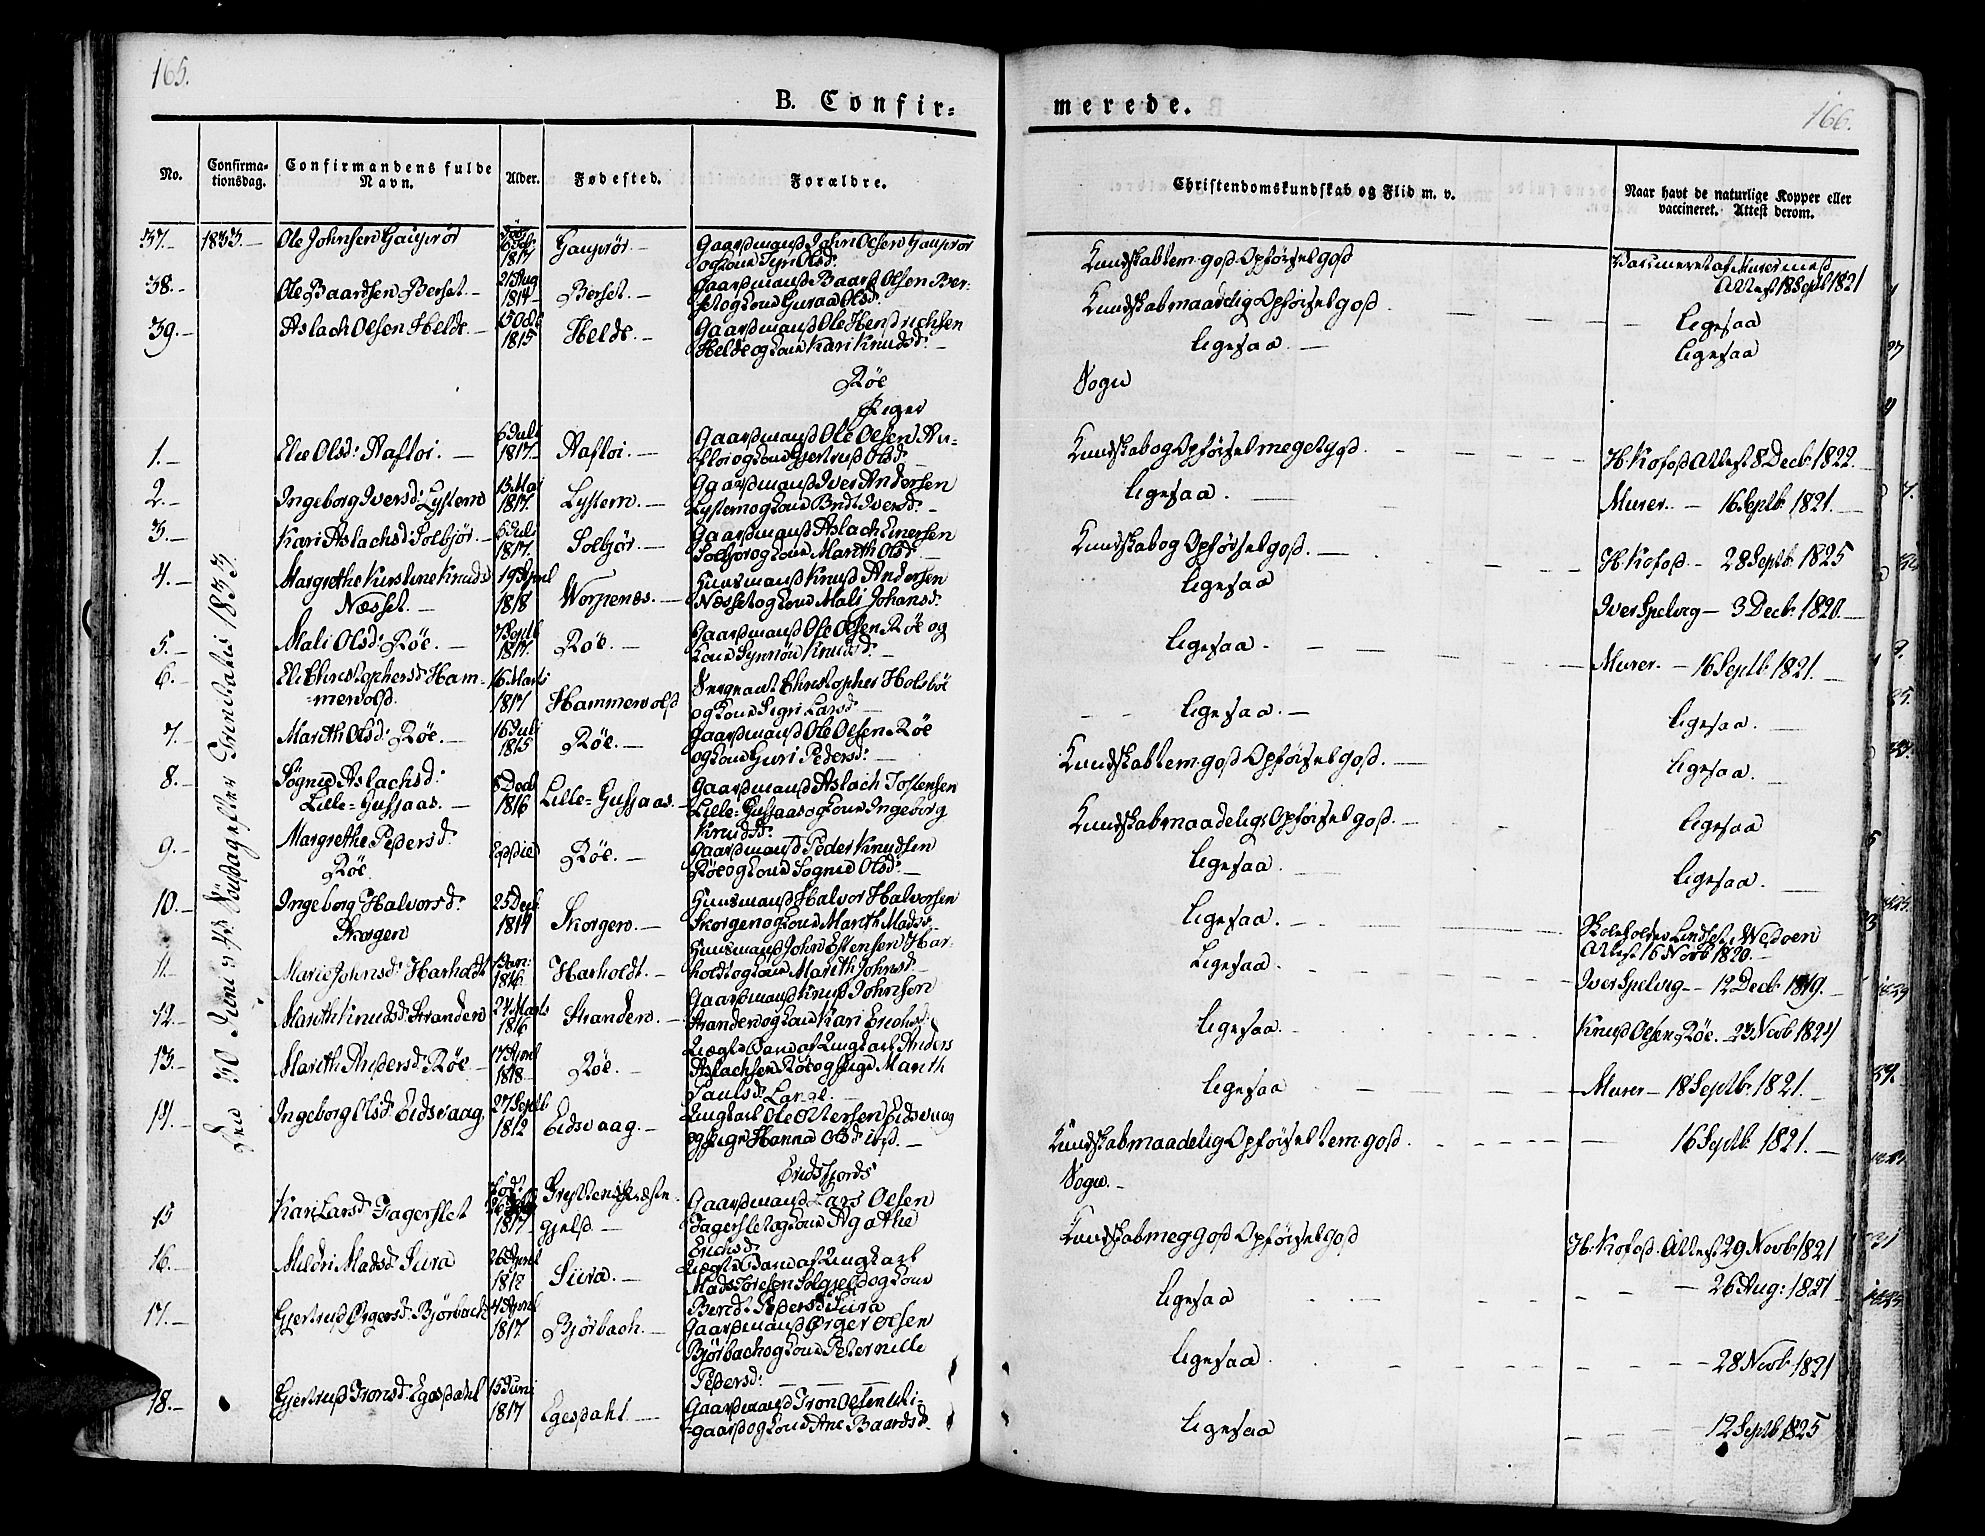 165.
166.
B. Confir=
merede.
No.
Confirma-
tionsdag.
Confirmandens fulde
Navn.
Alder.
Fødested.
Forældre.
Christendomskundskab og Flid m. v.
Naar havt de naturlige Kopper eller
vaccineret. Attest derom.
37.- 1833.- Ole Johnsen Gauprør
1817
Gauprør.- Gaardmand John Olsen Gauprør
og Kone Siri Olsd:
Kundskab tem. god. Opførsel god
Vaccineret af Murer med
Attest 18 Septb 1821
38.- Ole Baardsen Berset.- 21 Aug 1817 Berset.-
Gaardmand Baard Olsen Ber-
set og Kone Guraa Olsd:
Kundskab maadelig Opførsel god
ligesaa
39.- Aslach Olsen Helde.- 15 Octb 1815 Helde.-
Gaardmand Ole Hendrichsen
Helde og Kone Kari Knudsd:-
ligesaa.-
ligesaa
Røe Sogn
Piger
Den 30 Juni 4de Søndag efter Trinitatis 1833.
1.- Elie Olsd: Aafloi.- 6 Juli 1817 Aafloi.-
Gaardmand Ole Olsen Aa-
floi og Kone Gjertrud Olsd:
Kundskab og Opførsel meget god.
H. Kofod Attest 8 Decb. 1822
2.- Ingeborg Iversd: Lystem 13 Mai 1817. Lystem.-
Gaardmand Iver Andersen
Lystem og Kone Brit Iversd:-
ligesaa.
Murer.- 16 Septb. 1821.
3.- Kari Aslachsd Solbjør.- 6 Juli 1817. Solbjør.-
Gaardmand Aslach Einersen
Solbjør og Kone Marith Olsd.-
Kundskab og Opførsel god.-
H. Kofod.- 28 Septb. 1825
4.- Margrethe Kirstine Knudsd
Næsset.- 19 April 1818 Worpenæs.-
Huusmand Knud Andersen
Næsset og Kone Mali Johansd:
ligesaa
Iver Spelvig- 3 Decb. 1820.-
5.- Mali Olsd: Røe.- 7 Septb 1817. Røe.-
Gaardmand Ole Olsen Røe og
Kone Synnøv Knudsd:-
ligesaa.
Murer.- 16 Septb. 1821.
6.- Eli Christophersd: Ham-
=mervold. 16 Marts 1817 Hammervold
Sergeant Christopher Holsbøe
og Kone Sigri Larsd:
ligesaa.-
ligesaa.
7.- Marith Olsd: Røe.- 16 Juli 1815 Røe.-
Gaardmand Ole Olsen Røe
og Kone Guri Pedersd:
Kundskab tem. god Opførsel god.-
ligesaa.
8.- Sögnid Aslachsd:
Lille=Gusjaas.- 8 Decb 1816 Lille=Gusjaas.-
Gaardmand Aslach Tostensen
Lille=Gusjaas og Kone Ingeborg
Knudsd:
Kundskab maadelig Opførsel god.-
ligesaa
9.- Margrethe Pedersd:
Røe. Røe.-
Gaardmand Peder Knudsen
Røe og Kone Sögnid Olsd:-
ligesaa
ligesaa.
10.- Ingeborg Halvorsd:
Skorgen 25 Decb 1814 Skorgen.-
Huusmand Halvor Halvorsen
Skorgen og Kone Marith Madsd:
ligesaa.-
Skoleholder Lindset, Wedøen
Attest 16 Novb 1820.-
11.- Marie Johnsd: Harholdt 1816 Harholdt.-
Huusmand John Estensen Har-
holdt og Kone Marith Johnsd-
Ligesaa.
Iver Spelvig-- 12 Decb 1819.-
12.- Marith Knudsd: Stranden 24 Marts 1816 Stranden.-
Gaardmand Knud Johnsen
Stranden og Kone Kari Erichsd.
ligesaa.
Knud Olsen Røe.- 23 Novb 1824
13.- Marith Andersd: Røe.- 17 April 1818 Røe.-
Uægte Barn af Ungkarl Anders
Aslachsen Røe og Pige Marith
Paulsd. Lange.
ligesaa
Murer- 18 Septb. 1821.
14.- Ingeborg Olsd: Eidsvaag 27 Septb 1812 Eidsvaag.-
Ungkarl Ole Ottersen Eidsvaag
og Pige Hanna Olsd ibd.-
Kundskab maadelig Opførsel tem. god.
16 Septb. 1821.-
Eridsfjords Sogn.-
15 Kari Larsd. Fagerslet 1817 Gryttens Præste-
gjeld-
Gaardmand Lars Olsen
Fagerslet og Kone Agathe
Erichsd:
Kundskab meg god Opførsel god
H. Kofod. Attest 29 Novb. 1821
16.- Mildri Madsd: Siira 26 April 1818 Siira.-
Uægte Barn af Ungkarl
Mads Iversen Solgjeld og Kone
Berit Pedersd Siira
ligesaa
26 Aug: 1821
17.- Gjertrud Ørgersd: Bjørbach 4 April 1817. Bjørbach.-
Gaardmand Ørger Olsen
Bjørbach og Kone Peternille
Pedersd:
ligesaa.
28 Novb. 1821
18.- Gjertrud Tronsd: Egesdahl 15 Juni 1817 Egesdahl.-
Gaardmand Tron Olsen Uti-
=gaard og Kone Ane Baardsd.
ligesaa
12 Septb 1825